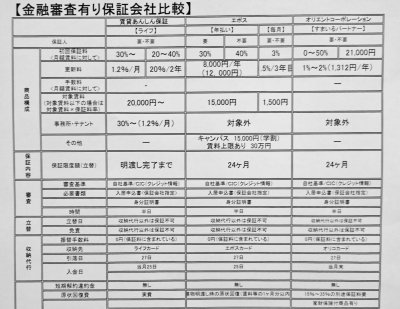 【金融審査有り保証会社比較】
賃貸あんしん保証 エポス オリエントコーポレーション
【ライフ】 【年払い】 【毎月】 【すまいるパートナー】
保証人 要・不要 要 不要 要・不要 要・不要
初回保証料 30%～ 20～40% 30% 40% 3% 0～50% 21,000円
(月額賃料に対して)
更新料 1.2%/月 20%/2年 8,000円/年 .5%/3年目 1%～2%(1,312円/年)
(12,000円)
手数料 - —
(月額賃料に対して)
対象賃料 20,000円～ 15,000円 1,500円
(対象賃料以下の場合は
対象賃料×保証料率)
商品構成
事務所・テナント 30%～(1.2%/月) 対象外 対象外
その他 — キャンパス 15,000円(学割) —
賃料上限あり 30万円
保証内容 保証限度額(立替) 明渡し完了まで 24ヶ月 24ヶ月
審査 審査基準 自社基準/CIC(クレジット情報) 自社基準/CIC(クレジット情報) 自社基準/CIC(クレジット情報)
必要書類 入居申込書(保証会社指定) 入居申込書(保証会社指定) 入居申込書(保証会社指定)
身分証明書 身分証明書 身分証明書
時間 半日 半日 半日
立替 立替日 収納代行以外は保証不可 収納代行以外は保証不可 収納代行以外は保証不可
免責 収納代行以外は保証不可 収納代行以外は保証不可 収納代行以外は保証不可
収納代行 振替手数料 0円(保証料に含まれている) 0円(保証料に含まれている) 0円(保証料に含まれている)
収納先 ライフカード エポスカード オリコカード
引落日 27日 27日 27日
入金日 当月25日 25日 当月末
短期解約違約金 無し 無し 無し
原状回復費 実費